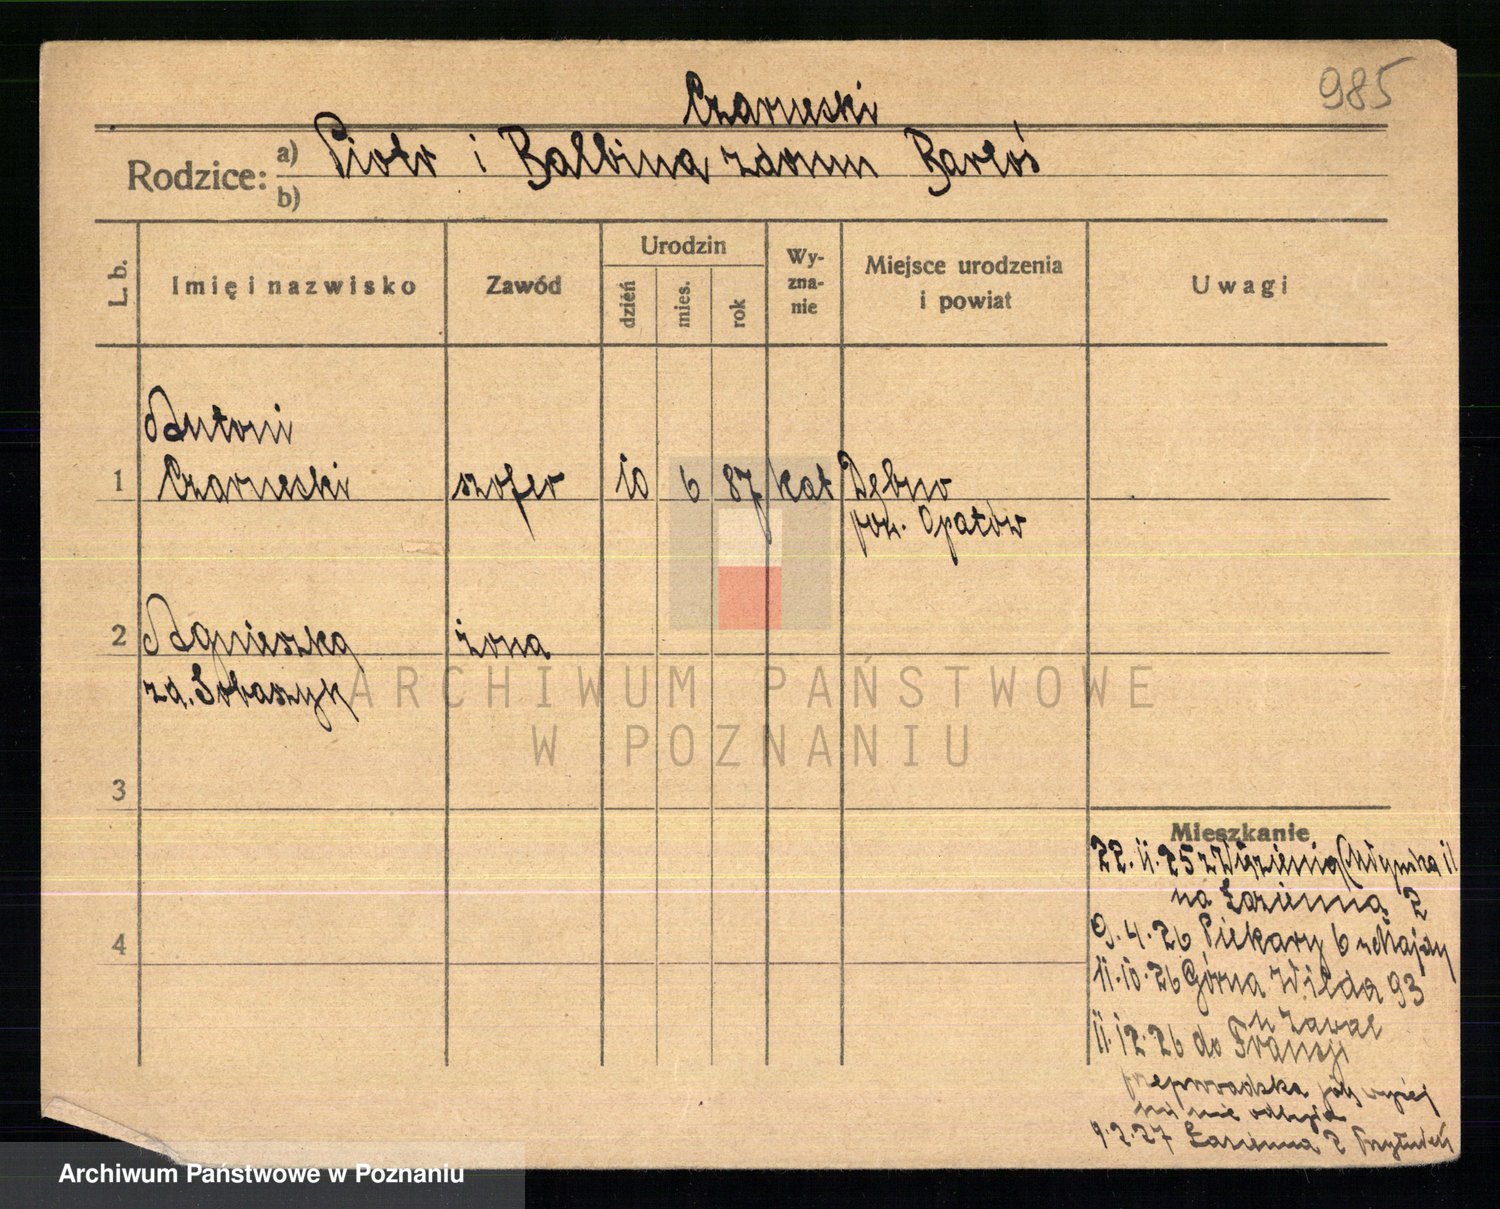 985
Czarneski
Rodzice: a) Piotr i Balbina z domu Barłoś
b)
L. b.
Imię i nazwisko
Zawód
Urodzin
dzień
mies.
rok
Wy-
zna-
nie
Miejsce urodzenia
i powiat
Uwagi
Antoni
1 Czarneski szofer 10 6 87 kat Dębno
pow. Opatów
2 Agnieszka żona
zd. Sobaszyk
ARCHIWUM PAŃSTWOWE
W POZNANIU
3
4
Mieszkanie
22.11.25 z Więzienia (Młyńska 11
na Łazienną 2
9.4.26 Piekary 6
11.10.26 Górna Wilda 93
11.12.26 do Francji
przeprowadzka jak wyżej
się nie odbyła
9.2.27 Łazienna 2
Archiwum Państwowe w Poznaniu